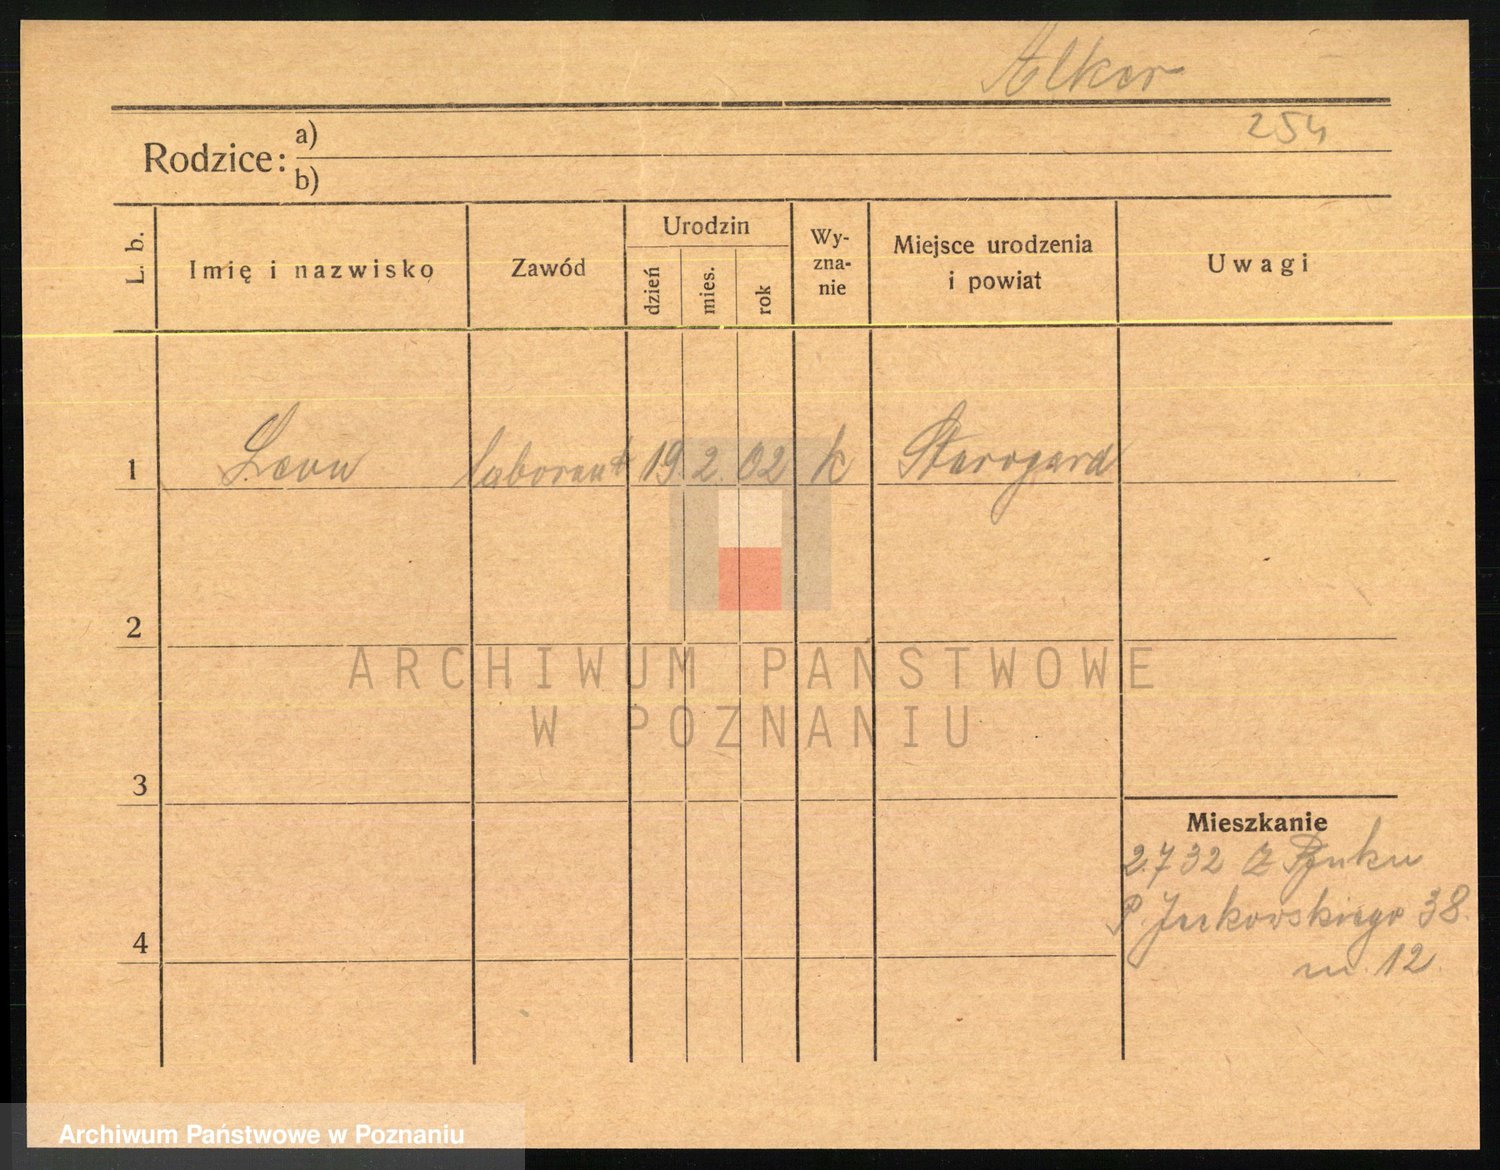 Alker
254
Rodzice:
a)
b)
L. b.
Imię i nazwisko
Zawód
Urodzin
dzień
mies.
rok
Wy-
zna-
nie
Miejsce urodzenia
i powiat
Uwagi
1 Leon laborant 19 2 02 k Starogard
2
3
4
Mieszkanie
2.7 32 Z Rynku
P. Jackowskiego 38.
m. 12.
ARCHIWUM PAŃSTWOWE
W POZNANIU
Archiwum Państwowe w Poznaniu